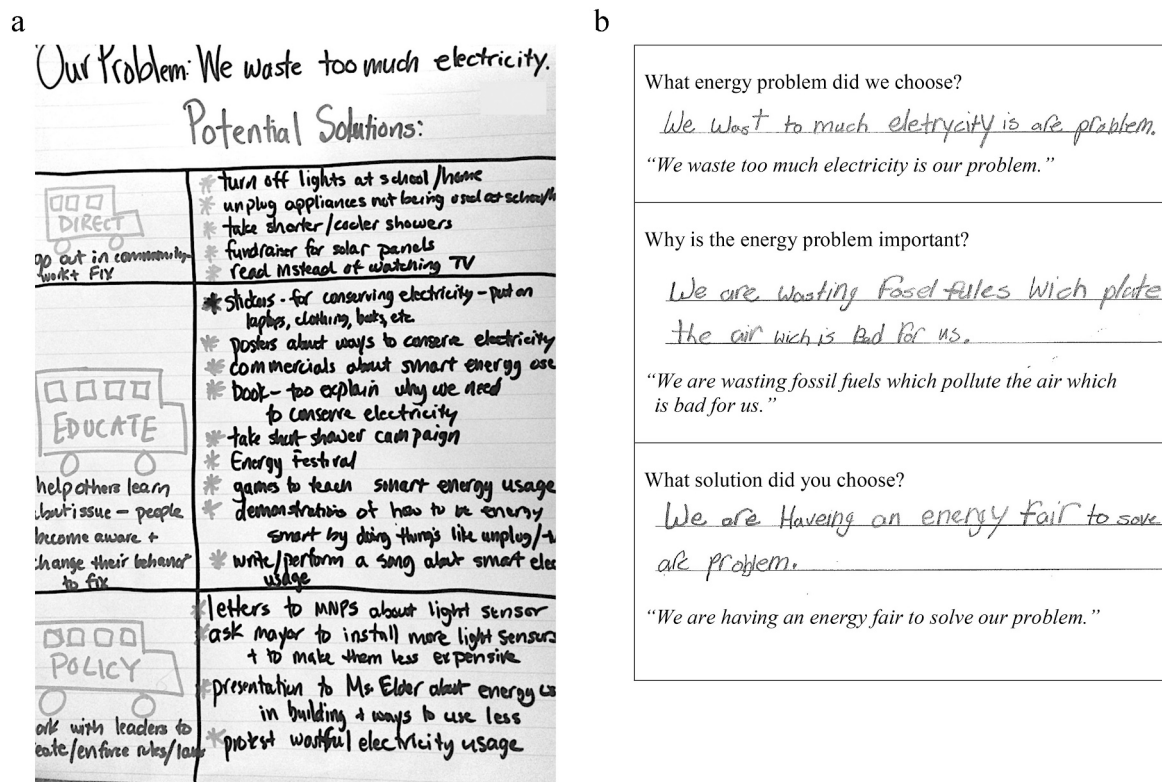 a
Our Problem: We waste too much electricity.
Potential Solutions:
DIRECT
go out in community-
work + Fix
* turn off lights at school/home
* unplug appliances not being used at school/h
* take shorter/cooler showers
* fundraiser for solar panels
* read instead of watching TV
EDUCATE
help others learn
about issue - people
become aware +
change their behavior
to fix
* stickers - for conserving electricity - put on
laptops, clothing, books, etc
* posters about ways to conserve electricity
* commercials about smart energy use
* book - too explain why we need
to conserve electricity
* take short shower campaign
* Energy Festival
* games to teach smart energy usage
* demonstrations of how to be energy
smart by doing things like unplug/
* write/perform a song about smart elec
usage
POLICY
ork with leaders to
eate/enforce rules/laws
* letters to MNPS about light sensor
* ask mayor to install more light sensors
+ to make them less expensive
* presentation to Ms. Elder about energy us
in building + ways to use less
* protest wastful electricity usage
b
What energy problem did we choose?
We wast to much eletrycity is are problem.
“We waste too much electricity is our problem.”
Why is the energy problem important?
We are wasting fosel fules wich plate
the air wich is Bad for us.
“We are wasting fossil fuels which pollute the air which
is bad for us.”
What solution did you choose?
We are Haveing an energy fair to sove
are problem.
“We are having an energy fair to solve our problem.”